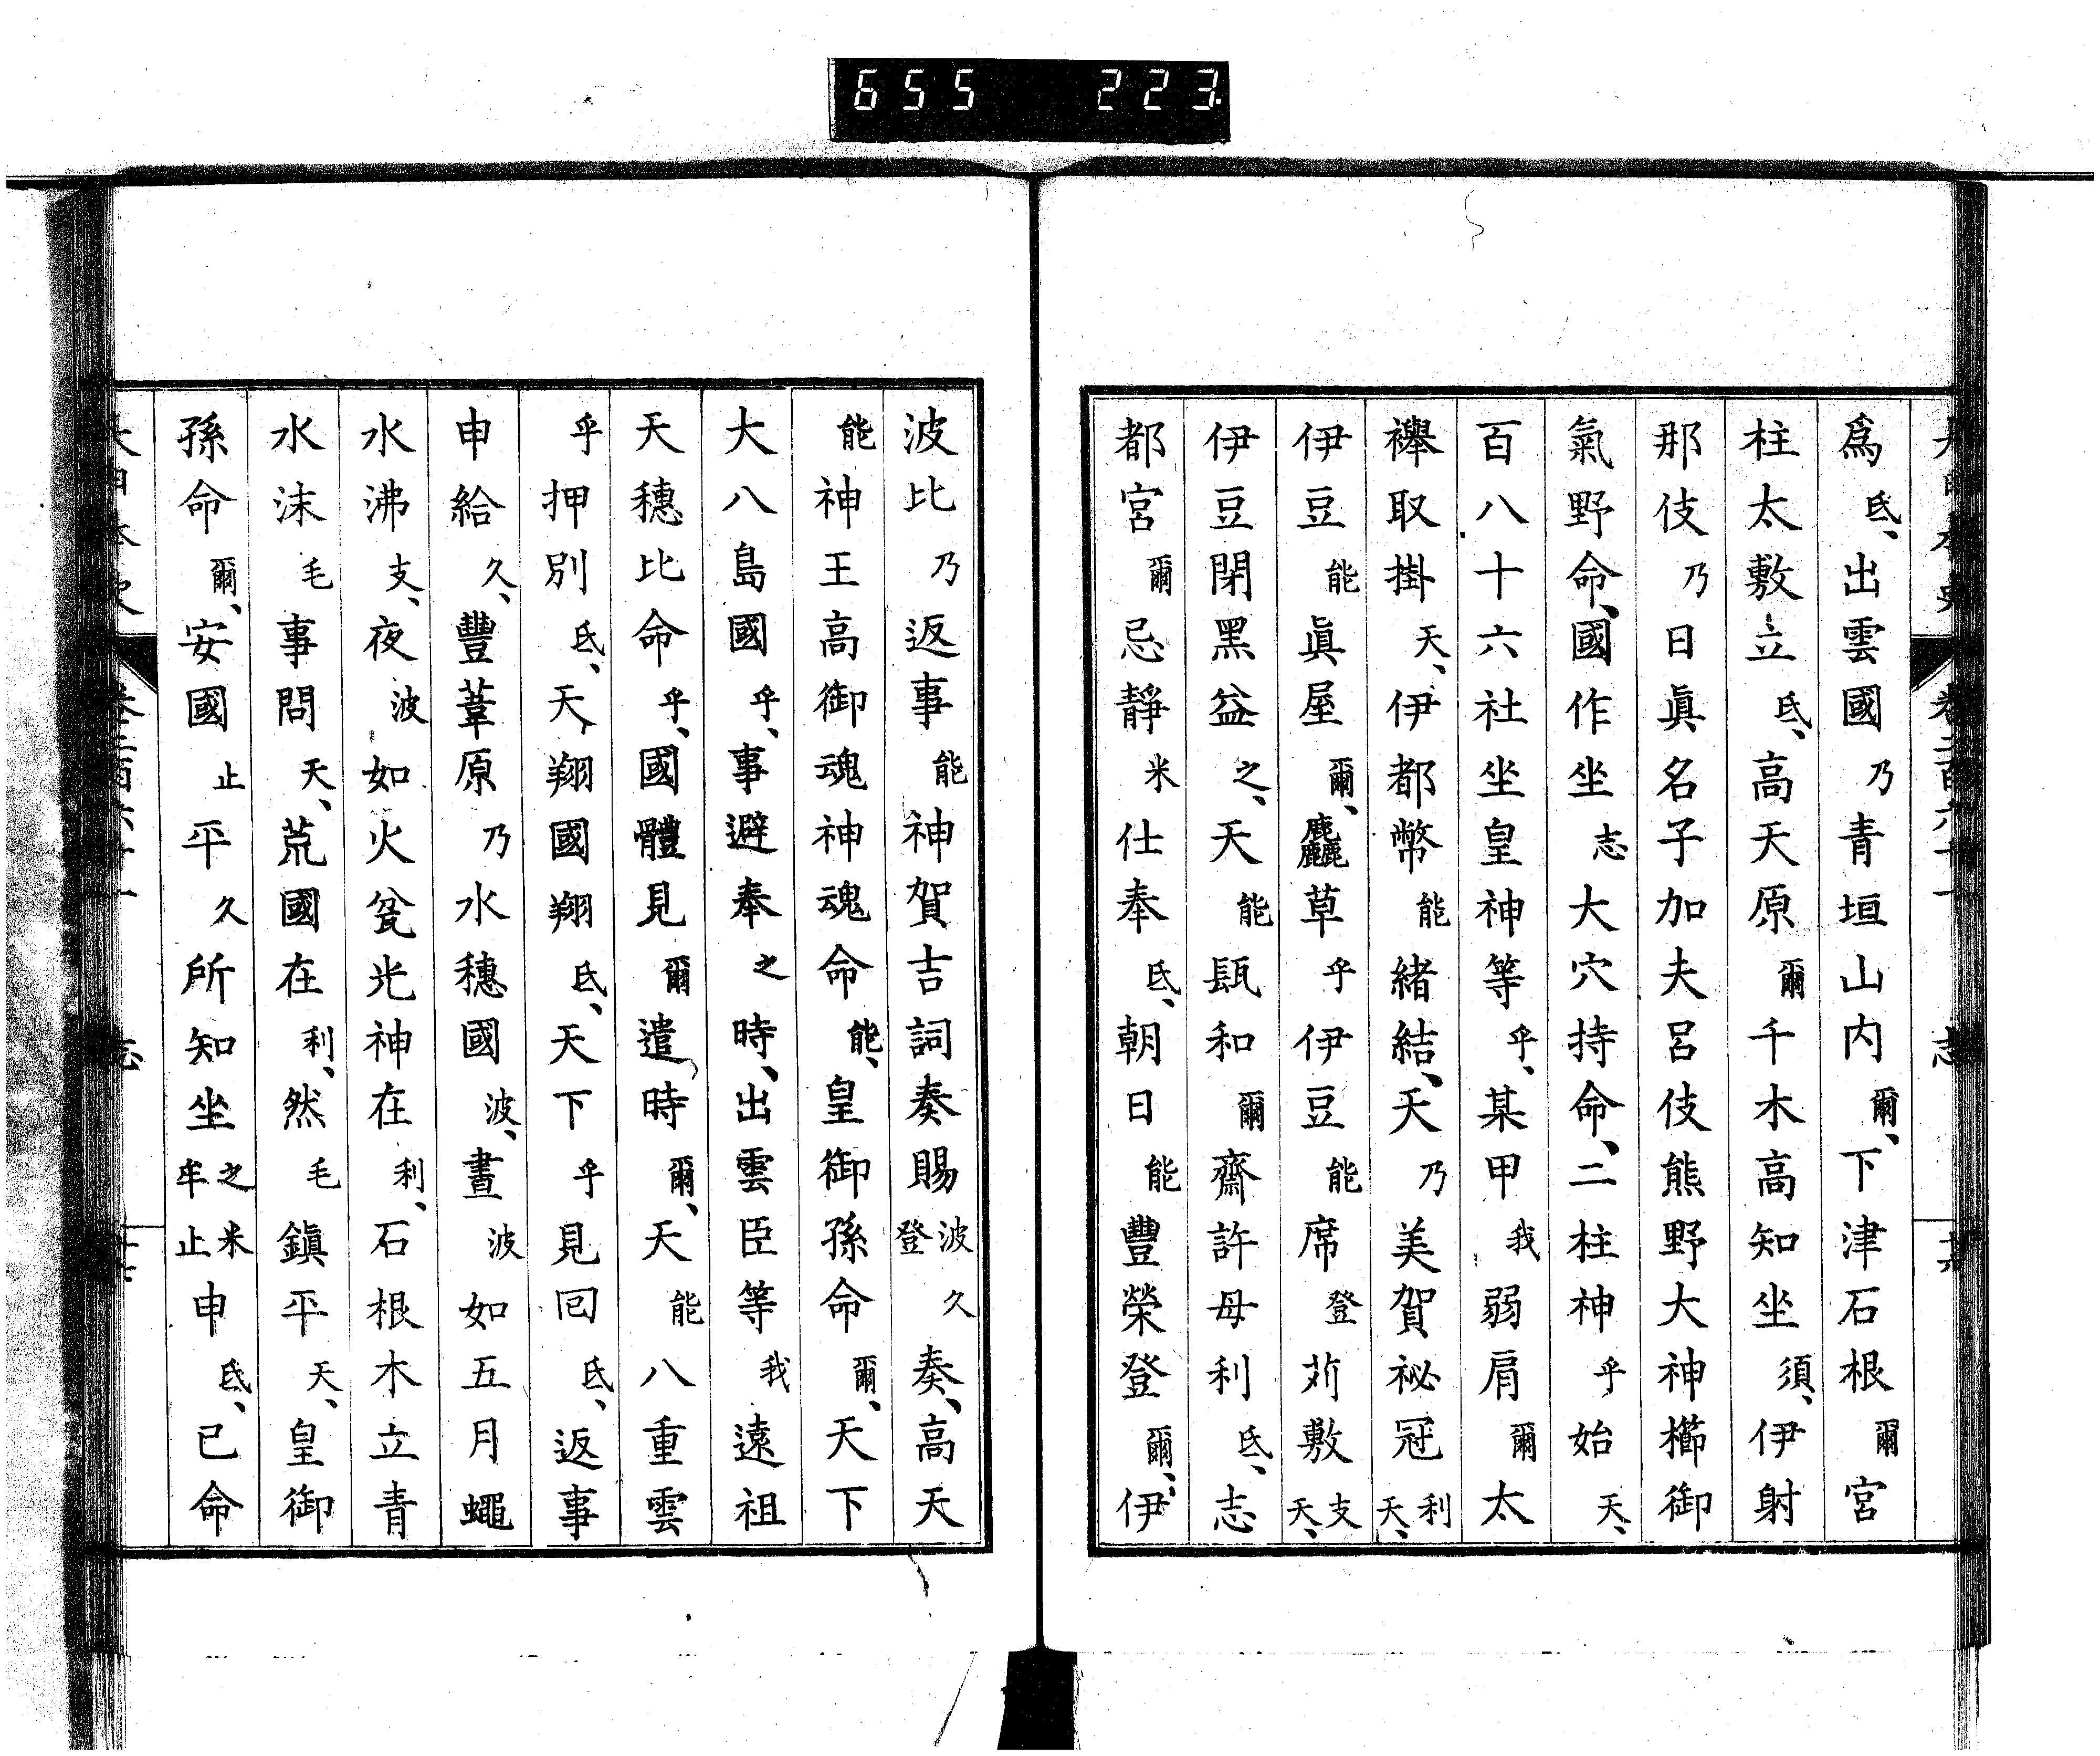 655 223.
爲氐、出雲國乃青垣山内爾、下津石根爾宮
柱太敷立氐、高天原爾千木高知坐須、伊射
那伎乃日眞名子加夫呂伎熊野大神櫛御
氣野命、國作坐志大穴持命、二柱神乎始天、
百八十六社坐皇神等乎、某甲我弱肩爾太
襷取掛天、伊都幣能緒結、天乃美賀祕冠利天、
伊豆能眞屋爾、麤草乎伊豆能席登苅敷支天、
伊豆閉黑益之、天能𤭖和爾齋許母利氐、志
都宮爾忌靜米仕奉氐、朝日能豐榮登爾、伊
波比乃返事能神賀吉詞奏賜波久登奏、高天
能神王高御魂神魂命能、皇御孫命爾、天下
大八島國乎、事避奉之時、出雲臣等我遠祖
天穗比命乎、國體見爾遣時爾、天能八重雲
乎押別氐、天翔國翔氐、天下乎見囘氐、返事
申給久、豐葦原乃水穗國波、晝波如五月蠅
水沸支、夜波如火瓫光神在利、石根木立青
水沫毛事問天、荒國在利、然毛鎭平天、皇御
孫命爾、安國止平久所知坐之米牟止申氐、己命